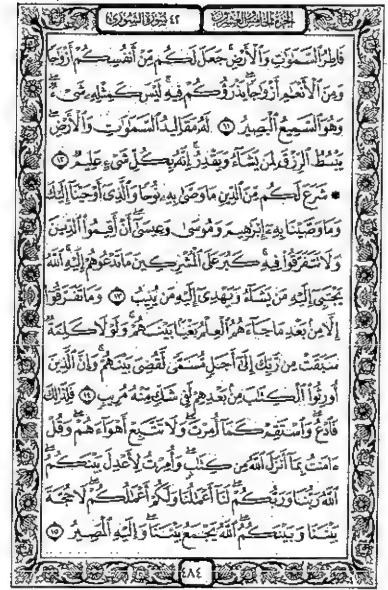 الجزء الخامس والعشرون ٤٢ سورة الشورى
فَاطِرُ السَّمَٰوَٰتِ وَالْأَرْضِ جَعَلَ لَكُم مِّنْ أَنفُسِكُمْ أَزْوَٰجًا
وَمِنَ الْأَنْعَٰمِ أَزْوَٰجًا يَذْرَؤُكُمْ فِيهِ لَيْسَ كَمِثْلِهِ شَىْءٌ
وَهُوَ السَّمِيعُ الْبَصِيرُ ١١ لَهُ مَقَالِيدُ السَّمَٰوَٰتِ وَالْأَرْضِ
يَبْسُطُ الرِّزْقَ لِمَن يَشَآءُ وَيَقْدِرُ إِنَّهُ بِكُلِّ شَىْءٍ عَلِيمٌ ١٢
* شَرَعَ لَكُم مِّنَ الدِّينِ مَا وَصَّىٰ بِهِ نُوحًا وَالَّذِى أَوْحَيْنَا إِلَيْكَ
وَمَا وَصَّيْنَا بِهِ إِبْرَٰهِيمَ وَمُوسَىٰ وَعِيسَىٰ أَنْ أَقِيمُوا الدِّينَ
وَلَا تَتَفَرَّقُوا فِيهِ كَبُرَ عَلَى الْمُشْرِكِينَ مَا تَدْعُوهُمْ إِلَيْهِ اللَّهُ
يَجْتَبِى إِلَيْهِ مَن يَشَآءُ وَيَهْدِى إِلَيْهِ مَن يُنِيبُ ١٣ وَمَا تَفَرَّقُوا
إِلَّا مِن بَعْدِ مَا جَآءَهُمُ الْعِلْمُ بَغْيًا بَيْنَهُمْ وَلَوْلَا كَلِمَةٌ
سَبَقَتْ مِن رَّبِّكَ إِلَىٰ أَجَلٍ مُّسَمًّى لَّقُضِىَ بَيْنَهُمْ وَإِنَّ الَّذِينَ
أُورِثُوا الْكِتَٰبَ مِن بَعْدِهِمْ لَفِى شَكٍّ مِّنْهُ مُرِيبٍ ١٤ فَلِذَٰلِكَ
فَادْعُ وَاسْتَقِمْ كَمَا أُمِرْتَ وَلَا تَتَّبِعْ أَهْوَآءَهُمْ وَقُلْ
ءَامَنتُ بِمَا أَنزَلَ اللَّهُ مِن كِتَٰبٍ وَأُمِرْتُ لِأَعْدِلَ بَيْنَكُمُ
اللَّهُ رَبُّنَا وَرَبُّكُمْ لَنَا أَعْمَٰلُنَا وَلَكُمْ أَعْمَٰلُكُمْ لَا حُجَّةَ
بَيْنَنَا وَبَيْنَكُمُ اللَّهُ يَجْمَعُ بَيْنَنَا وَإِلَيْهِ الْمَصِيرُ ١٥
٤٨٤